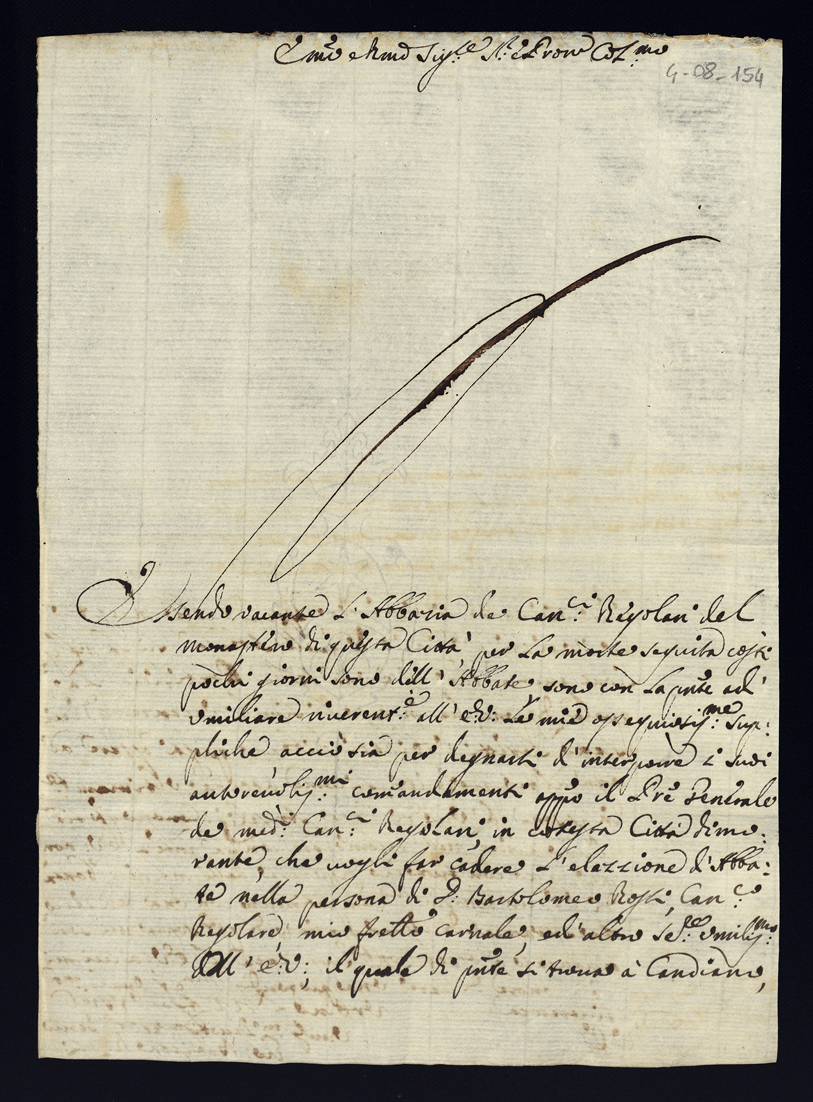 Em.o e Rmd Sig.re S.r e Pron.e Col.mo
4-08-154
Essendo vacante L'Abbazia de Can.ci Regolari del
monastero di questa Città per la morte seguita costi
pochi giorni sono dell'Abbate, sono con la pnte ad
umiliare riverent.e all' E:V: Le mie ossequiosis.me sup:
pliche acciò sia per degnarsi d'interporre i suoi
autorevolis.mi comandamenti appo il Pre Generale
de med.i Can.ci Regolari, in cotesta Città dimo:
rante, che vogli far cadere L'elezzione d'Abba:
te nella persona di D: Bartolomeo Rosti, Can.co
Regolare, mio frello carnale, ed altro Se.re umilis.mo
dell' E:V:, il quale di pnte si trova à Candiano,